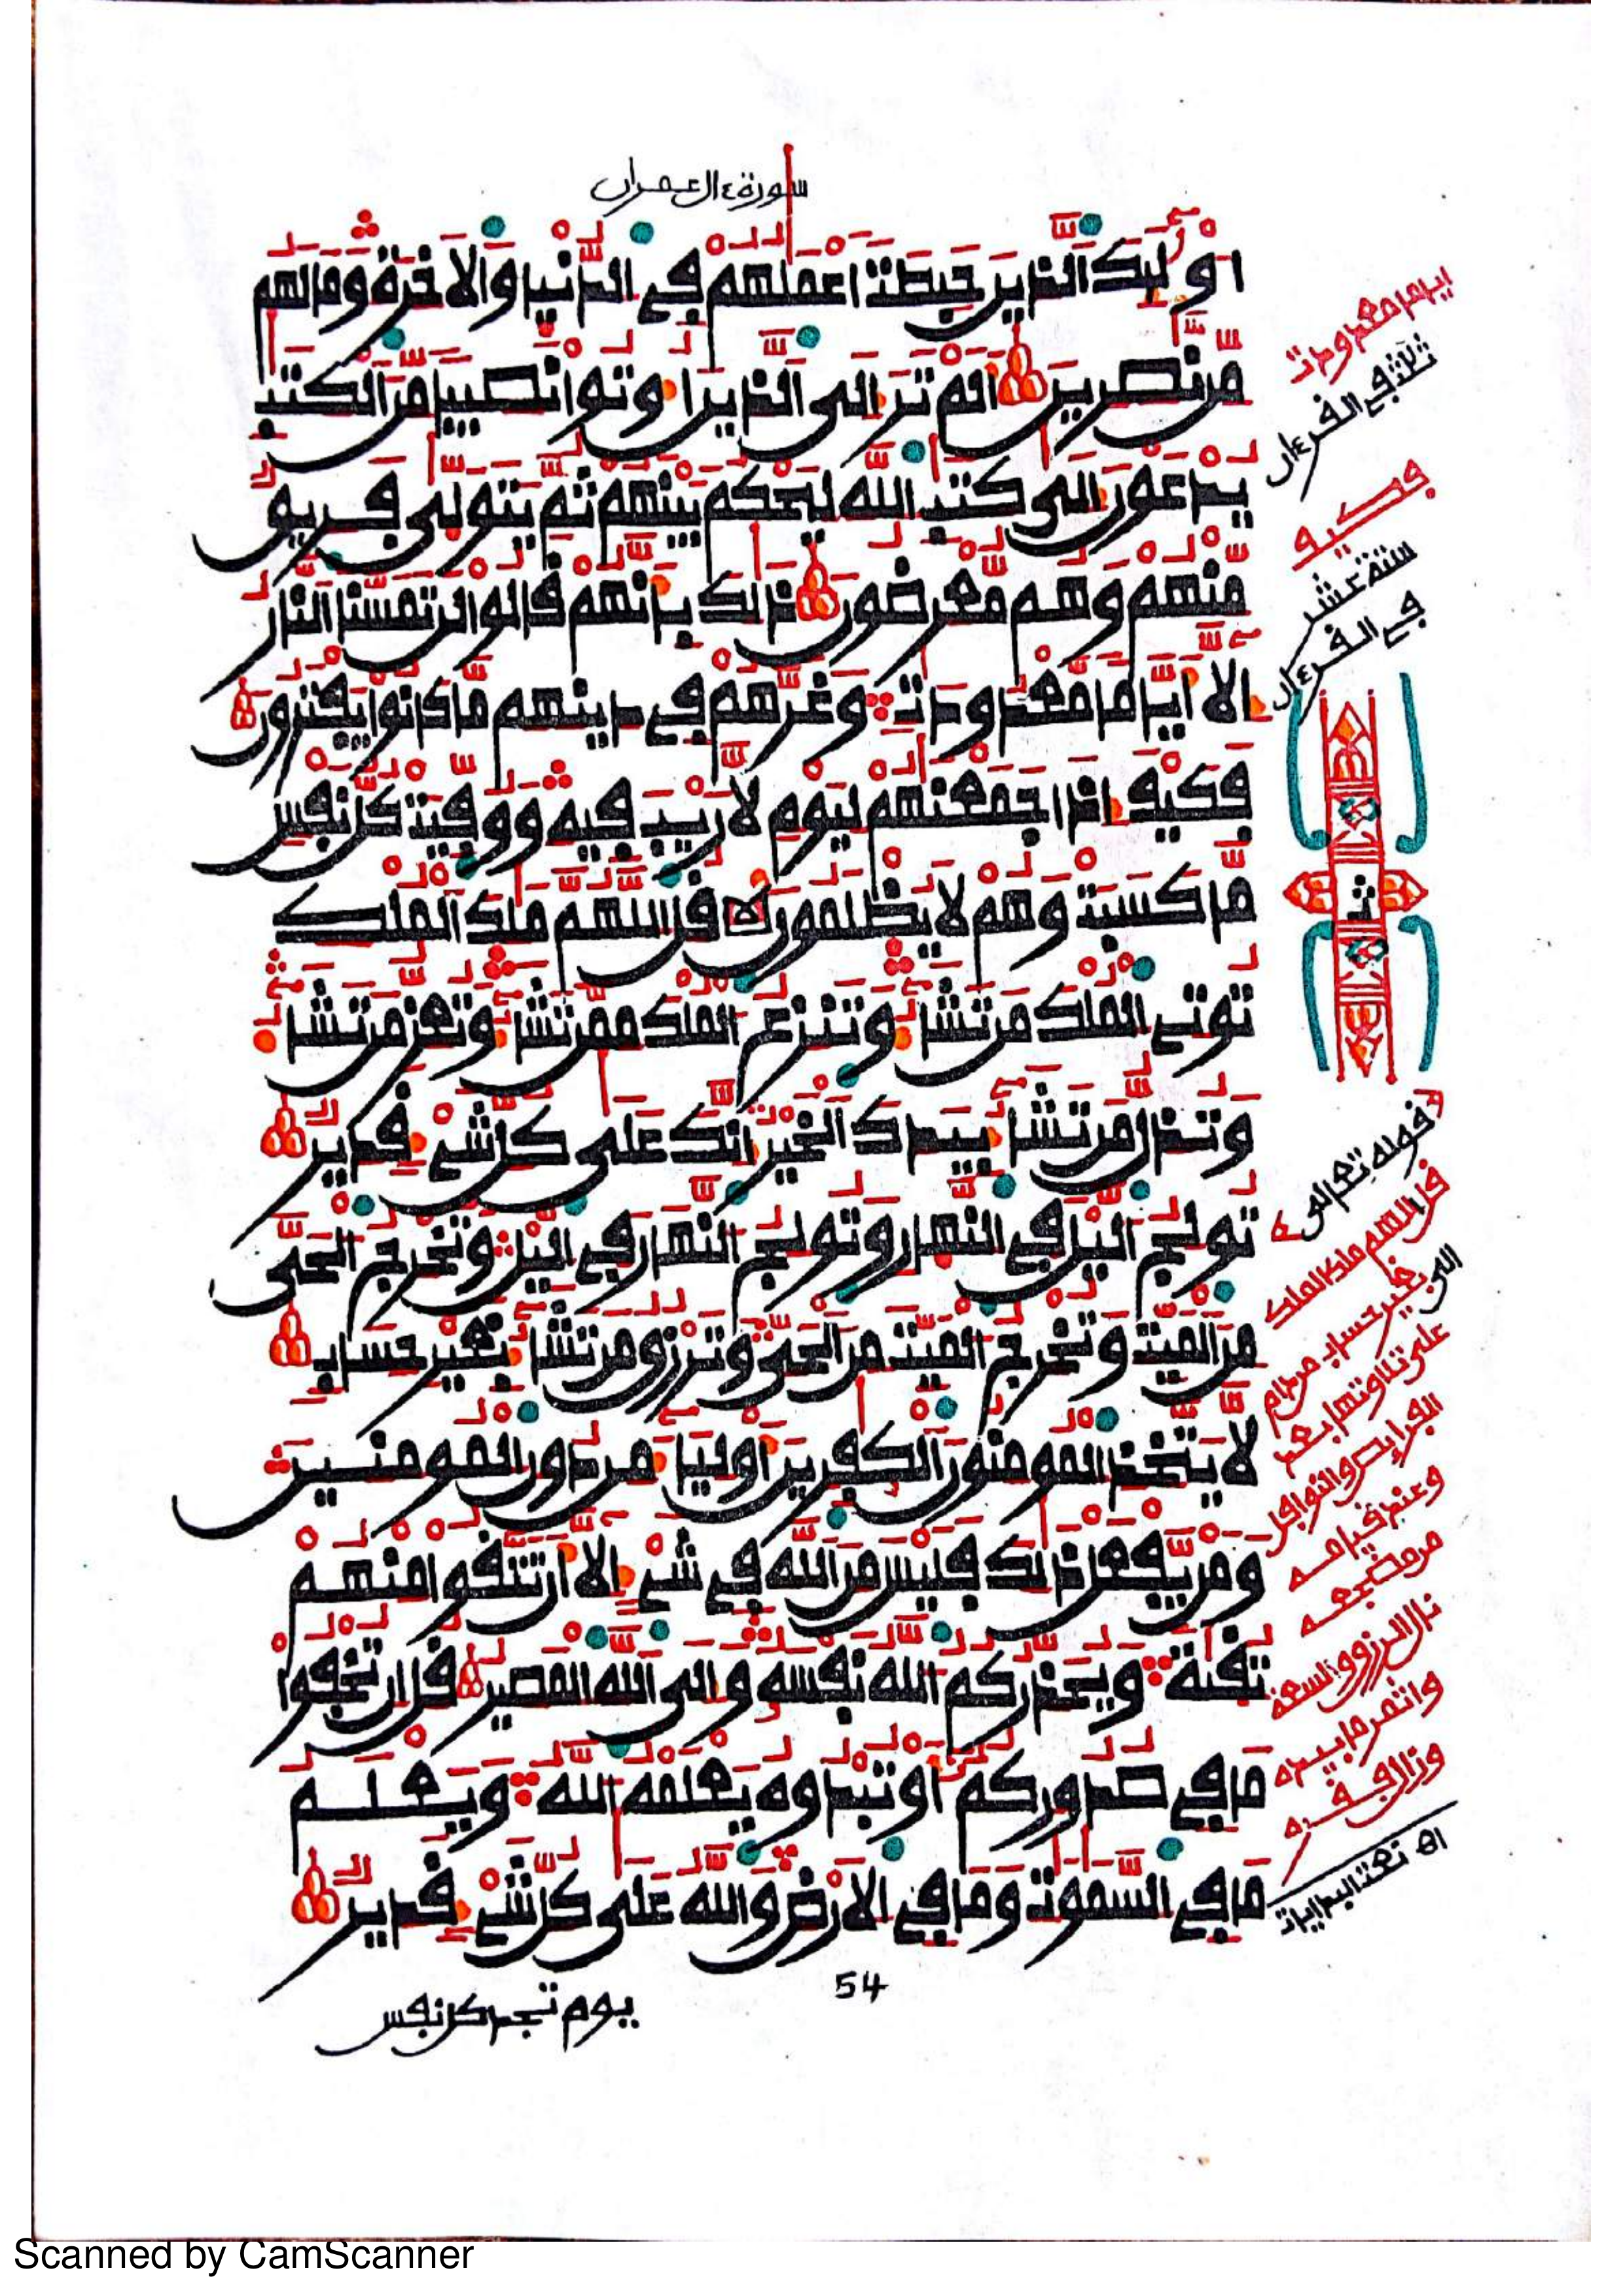 سورة ءال عمران
أولئك الذين حبطت أعملهم في الدنيا والأخرة وما لهم
من نصرين ألم تر إلى الذين أوتوا نصيبا من الكتب
يدعون إلى كتب الله ليحكم بينهم ثم يتولى فريق
منهم وهم معرضون ذلك بأنهم قالوا لن تمسنا النار
إلا أياما معدودات وغرهم في دينهم ما كانوا يفترون
فكيف إذا جمعنهم ليوم لا ريب فيه ووفيت كل نفس
ما كسبت وهم لا يظلمون قل اللهم ملك الملك
توتي الملك من تشاء وتنزع الملك ممن تشاء وتعز من تشاء
وتذل من تشاء بيدك الخير إنك على كل شيء قدير
تولج اليل في النهار وتولج النهار في اليل وتخرج الحي
من الميت وتخرج الميت من الحي وترزق من تشاء بغير حساب
لا يتخذ المومنون الكفرين أولياء من دون المومنين
ومن يفعل ذلك فليس من الله في شيء إلا أن تتقوا منهم
تقية ويحذركم الله نفسه وإلى الله المصير قل إن تخفوا
ما في صدوركم أو تبدوه يعلمه الله ويعلم
ما في السموت وما في الأرض والله على كل شيء قدير
54
يوم تجد كل نفس
اياما معدودات
ثلثة في القرءان
فكيف
ستة عشر
في القرءان
ث
قوله تعالى
قل اللهم ملك الملك
إلى بغير حساب من دام
على تلاوتها بعد
الفرايض والنوافل
وعند قيامه
من مضجعه
نال الرزق والسعة
واثمر ما بيده
وزال فقره
اه نعت البدايات
Scanned by CamScanner